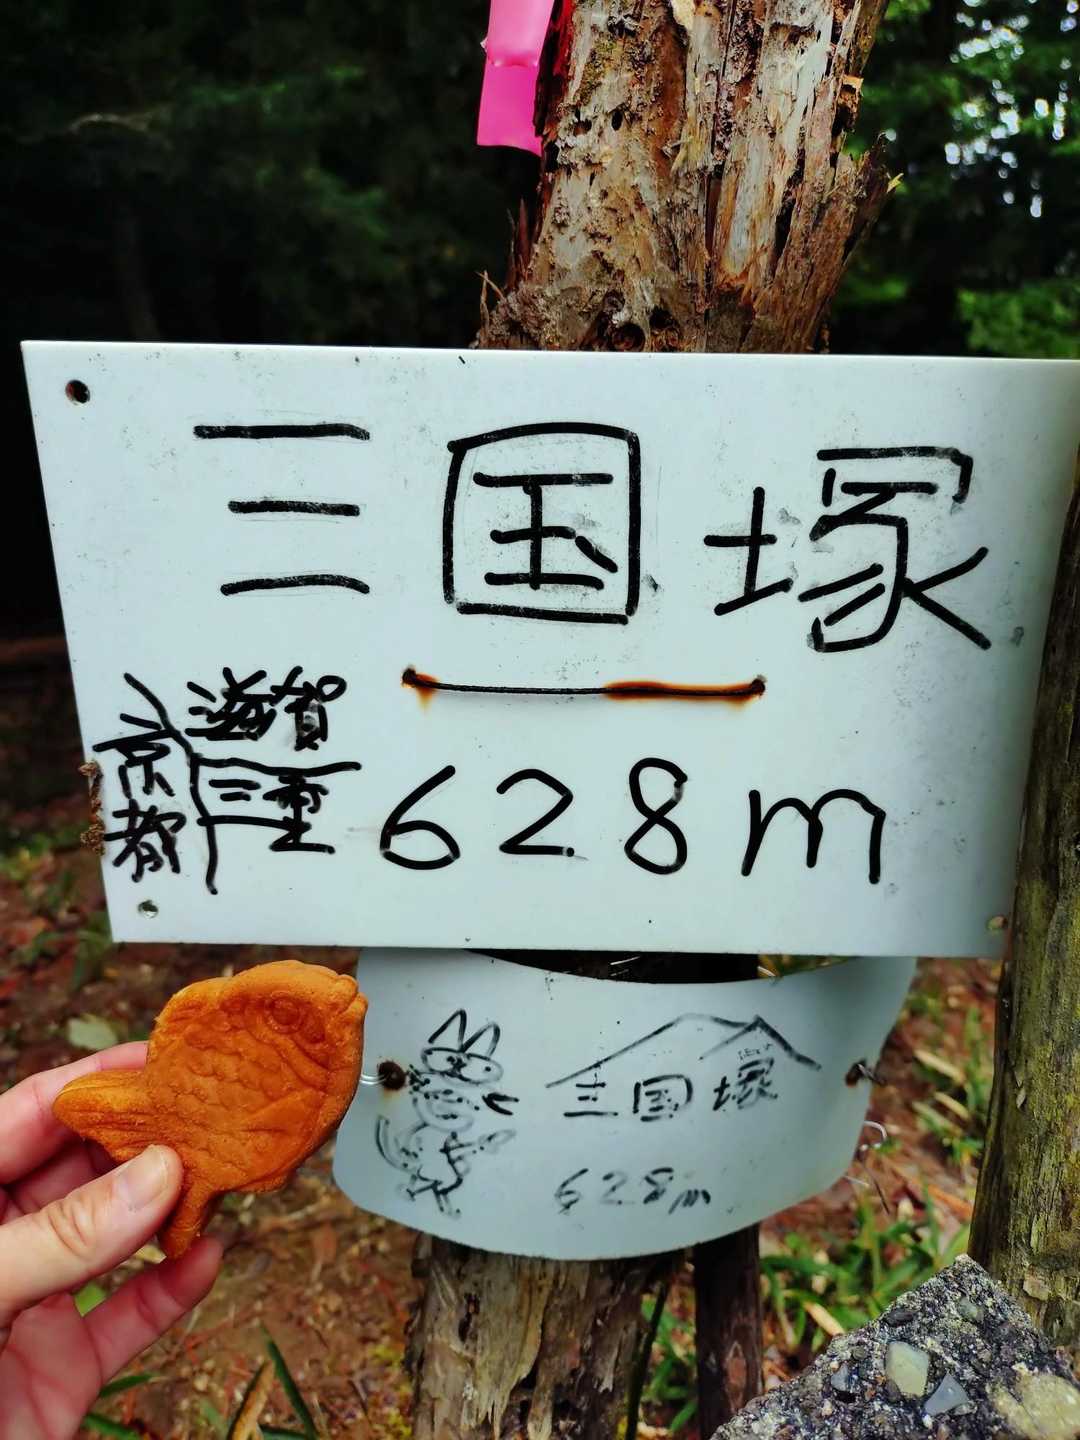 三国塚
滋賀
京都
三重
628m
三国塚
628m